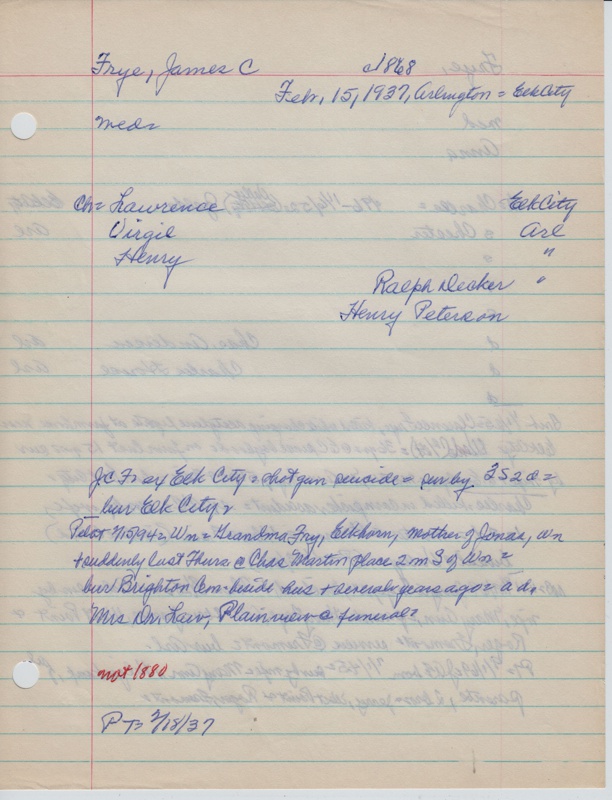 Frye, James C c1868
Feb, 15, 1937, Arlington = Elk City
med=
Ch= Lawrence Elk City
Virgil Arl
Henry "
Ralph Decker "
Henry Peterson
J.C. Fry Elk City = shotgun suicide = sur by 3S 2d =
bur Elk City.
Pilot 2/15/94=, Wn = Grandma Fry, Elkhorn, mother of Jonas, Wn
+ suddenly last Thurs @ Chas Martin place 2 m S of Wn =
bur Brighton Cem. beside hus + several years ago = a d,
Mrs Dr. Law, Plainview @ funeral=
not 1880
PT= 2/18/37